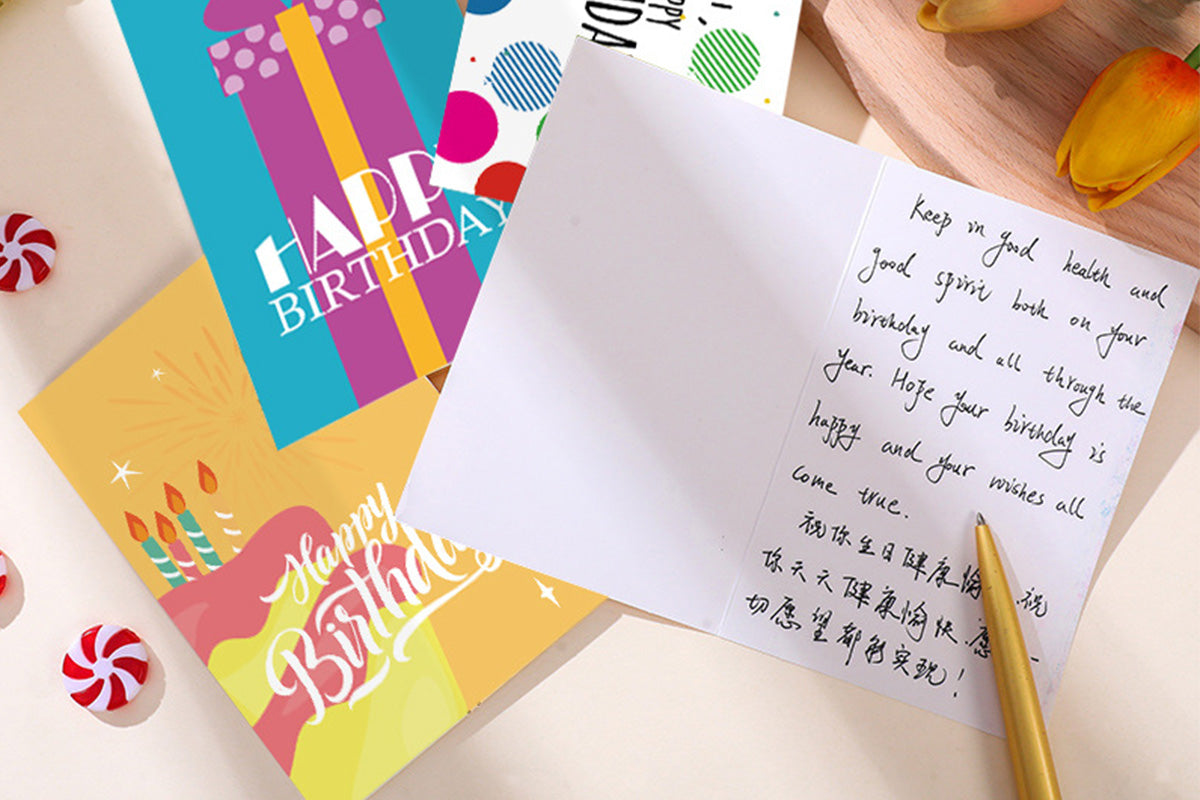 HAPPY
BIRTHDAY
Happy
Birthday
Keep in good health and
good spirit both on your
birthday and all through the
year. Hope your birthday is
happy and your wishes all
come true.
祝你生日健康愉 祝
你天天健康愉快.愿一
切愿望都能实现!